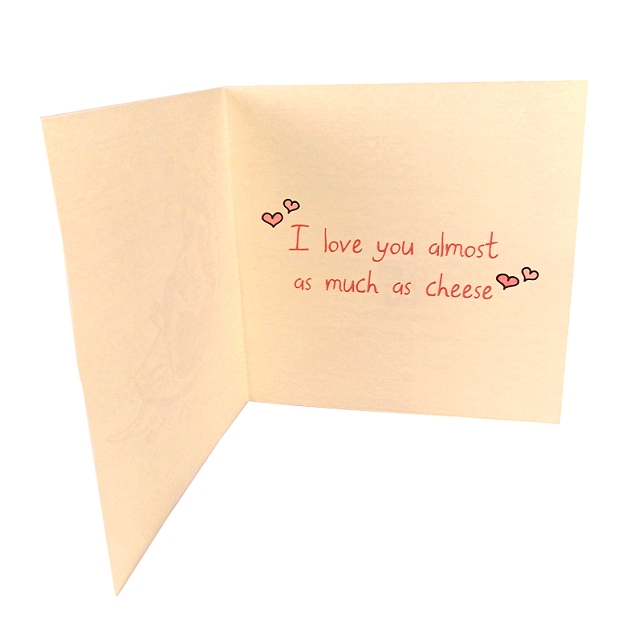 I love you almost
as much as cheese